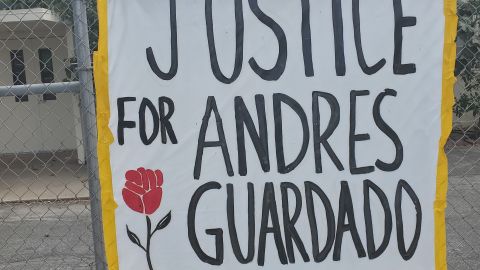 JUSTICE
FOR ANDRES
GUARDADO